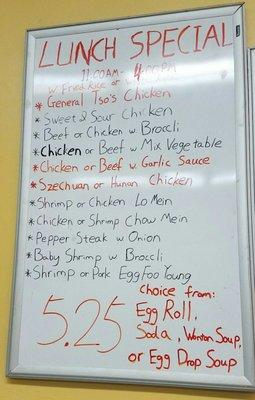 LUNCH SPECIAL
11:00AM - 4:00PM
W. Fried Rice or
* General Tso's Chicken
* Sweet & Sour Chicken
* Beef or Chicken w Broccli
* Chicken or Beef w Mix Vegetable
* Chicken or Beef w. Garlic Sauce
* Szechuan or Hunan Chicken
* Shrimp or Chicken Lo Mein
* Chicken or Shrimp Chow Mein
* Pepper Steak w Onion
* Baby Shrimp w Broccli
* Shrimp or Pork Egg Foo Young
5.25
choice from:
Egg Roll,
Soda, Wonton Soup,
or Egg Drop Soup